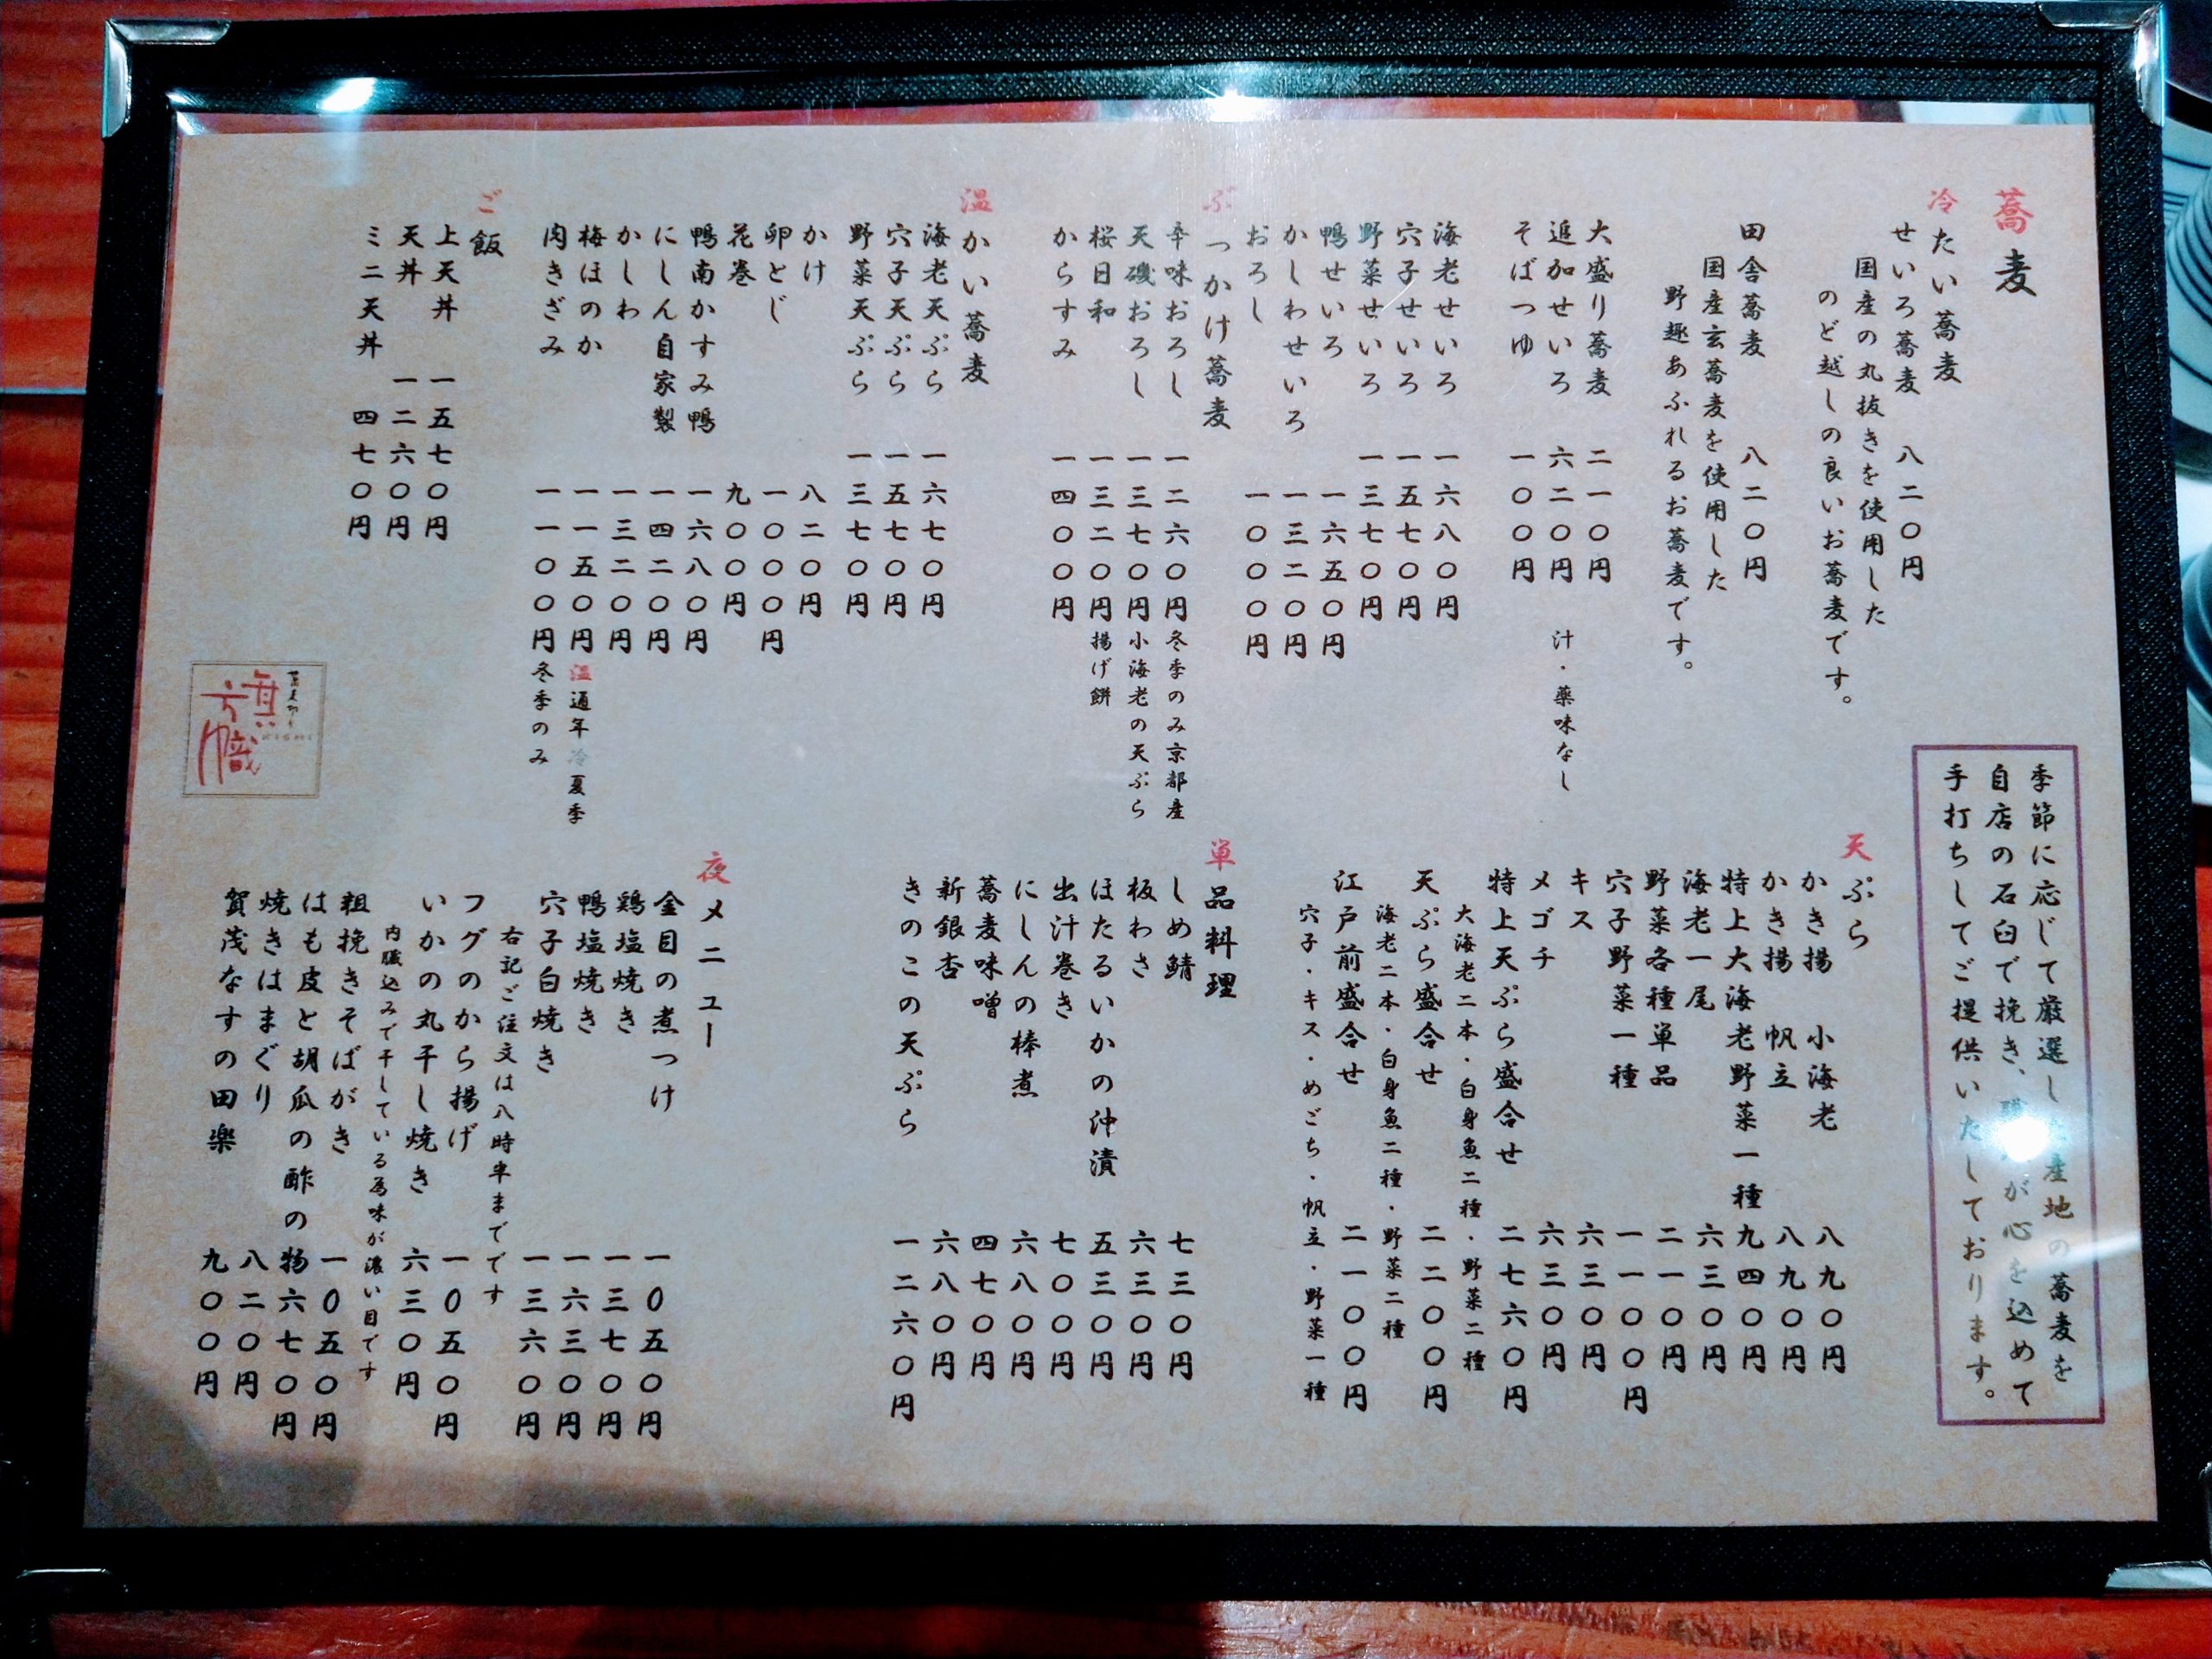 蕎麦
冷たい蕎麦
せいろ蕎麦 八二〇円
国産の丸抜きを使用した
のど越しの良いお蕎麦です。
田舎蕎麦 八二〇円
国産玄蕎麦を使用した
野趣あふれるお蕎麦です。
大盛り蕎麦 二一〇円
追加せいろ 六二〇円 汁・薬味なし
そばつゆ 一〇〇円
海老せいろ 一六八〇円
穴子せいろ 一五七〇円
野菜せいろ 一三七〇円
鴨せいろ 一六五〇円
かしわせいろ 一三二〇円
おろし 一〇〇〇円
ぶっかけ蕎麦
辛味おろし 一二六〇円 冬季のみ京都産
天磯おろし 一三七〇円 小海老の天ぷら
桜日和 一三二〇円 揚げ餅
からすみ 一四〇〇円
温かい蕎麦
海老天ぷら 一六七〇円
穴子天ぷら 一五七〇円
野菜天ぷら 一三七〇円
かけ 八二〇円
卵とじ 一〇〇〇円
花巻 九〇〇円
鴨南かすみ鴨 一六八〇円
にしん自家製 一四二〇円
かしわ 一三二〇円
梅ほのか 一一五〇円 温通年冷夏季
肉きざみ 一一〇〇円 冬季のみ
ご飯
上天丼 一五七〇円
天丼 一二六〇円
ミニ天丼 四七〇円
旗幟
季節に応じて厳選し 産地の蕎麦を
自店の石臼で挽き、 が心を込めて
手打ちしてご提供いたしております。
天ぷら
かき揚 小海老 八九〇円
かき揚 帆立 八九〇円
特上大海老野菜一種 九四〇円
海老一尾 六三〇円
野菜各種単品 二一〇円
穴子野菜一種 一一〇〇円
キス 六三〇円
メゴチ 六三〇円
特上天ぷら盛合せ 二七六〇円
大海老二本・白身魚二種・野菜二種
天ぷら盛合せ 二二〇〇円
海老二本・白身魚二種・野菜二種
江戸前盛合せ 二一〇〇円
穴子・キス・めごち・帆立・野菜一種
単品料理
しめ鯖 七三〇円
板わさ 六三〇円
ほたるいかの沖漬 五三〇円
出汁巻き 七〇〇円
にしんの棒煮 六八〇円
蕎麦味噌 四七〇円
新銀杏 六八〇円
きのこの天ぷら 一二六〇円
夜メニュー
金目の煮つけ 一〇五〇円
鶏塩焼き 一三七〇円
鴨塩焼き 一六三〇円
穴子白焼き 一三六〇円
右記ご注文は八時半までです
フグのから揚げ 一〇五〇円
いかの丸干し焼き 六三〇円
内臓込みで干している為味が濃い目です
粗挽きそばがき 一〇五〇円
はも皮と胡瓜の酢の物 六七〇円
焼きはまぐり 八二〇円
賀茂なすの田楽 九〇〇円